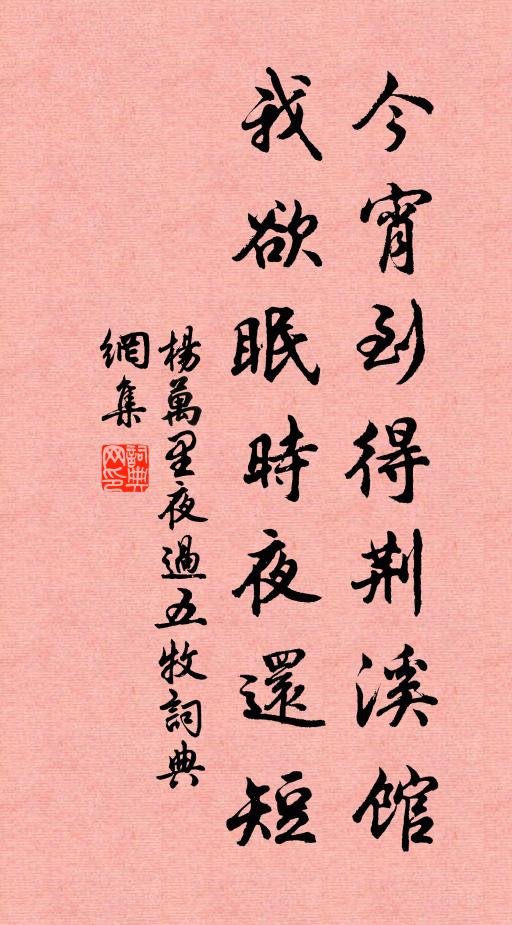 今宵到得荆溪館
我欲眠時夜還短
楊萬里夜過五牧詞典
網集
詞典网印